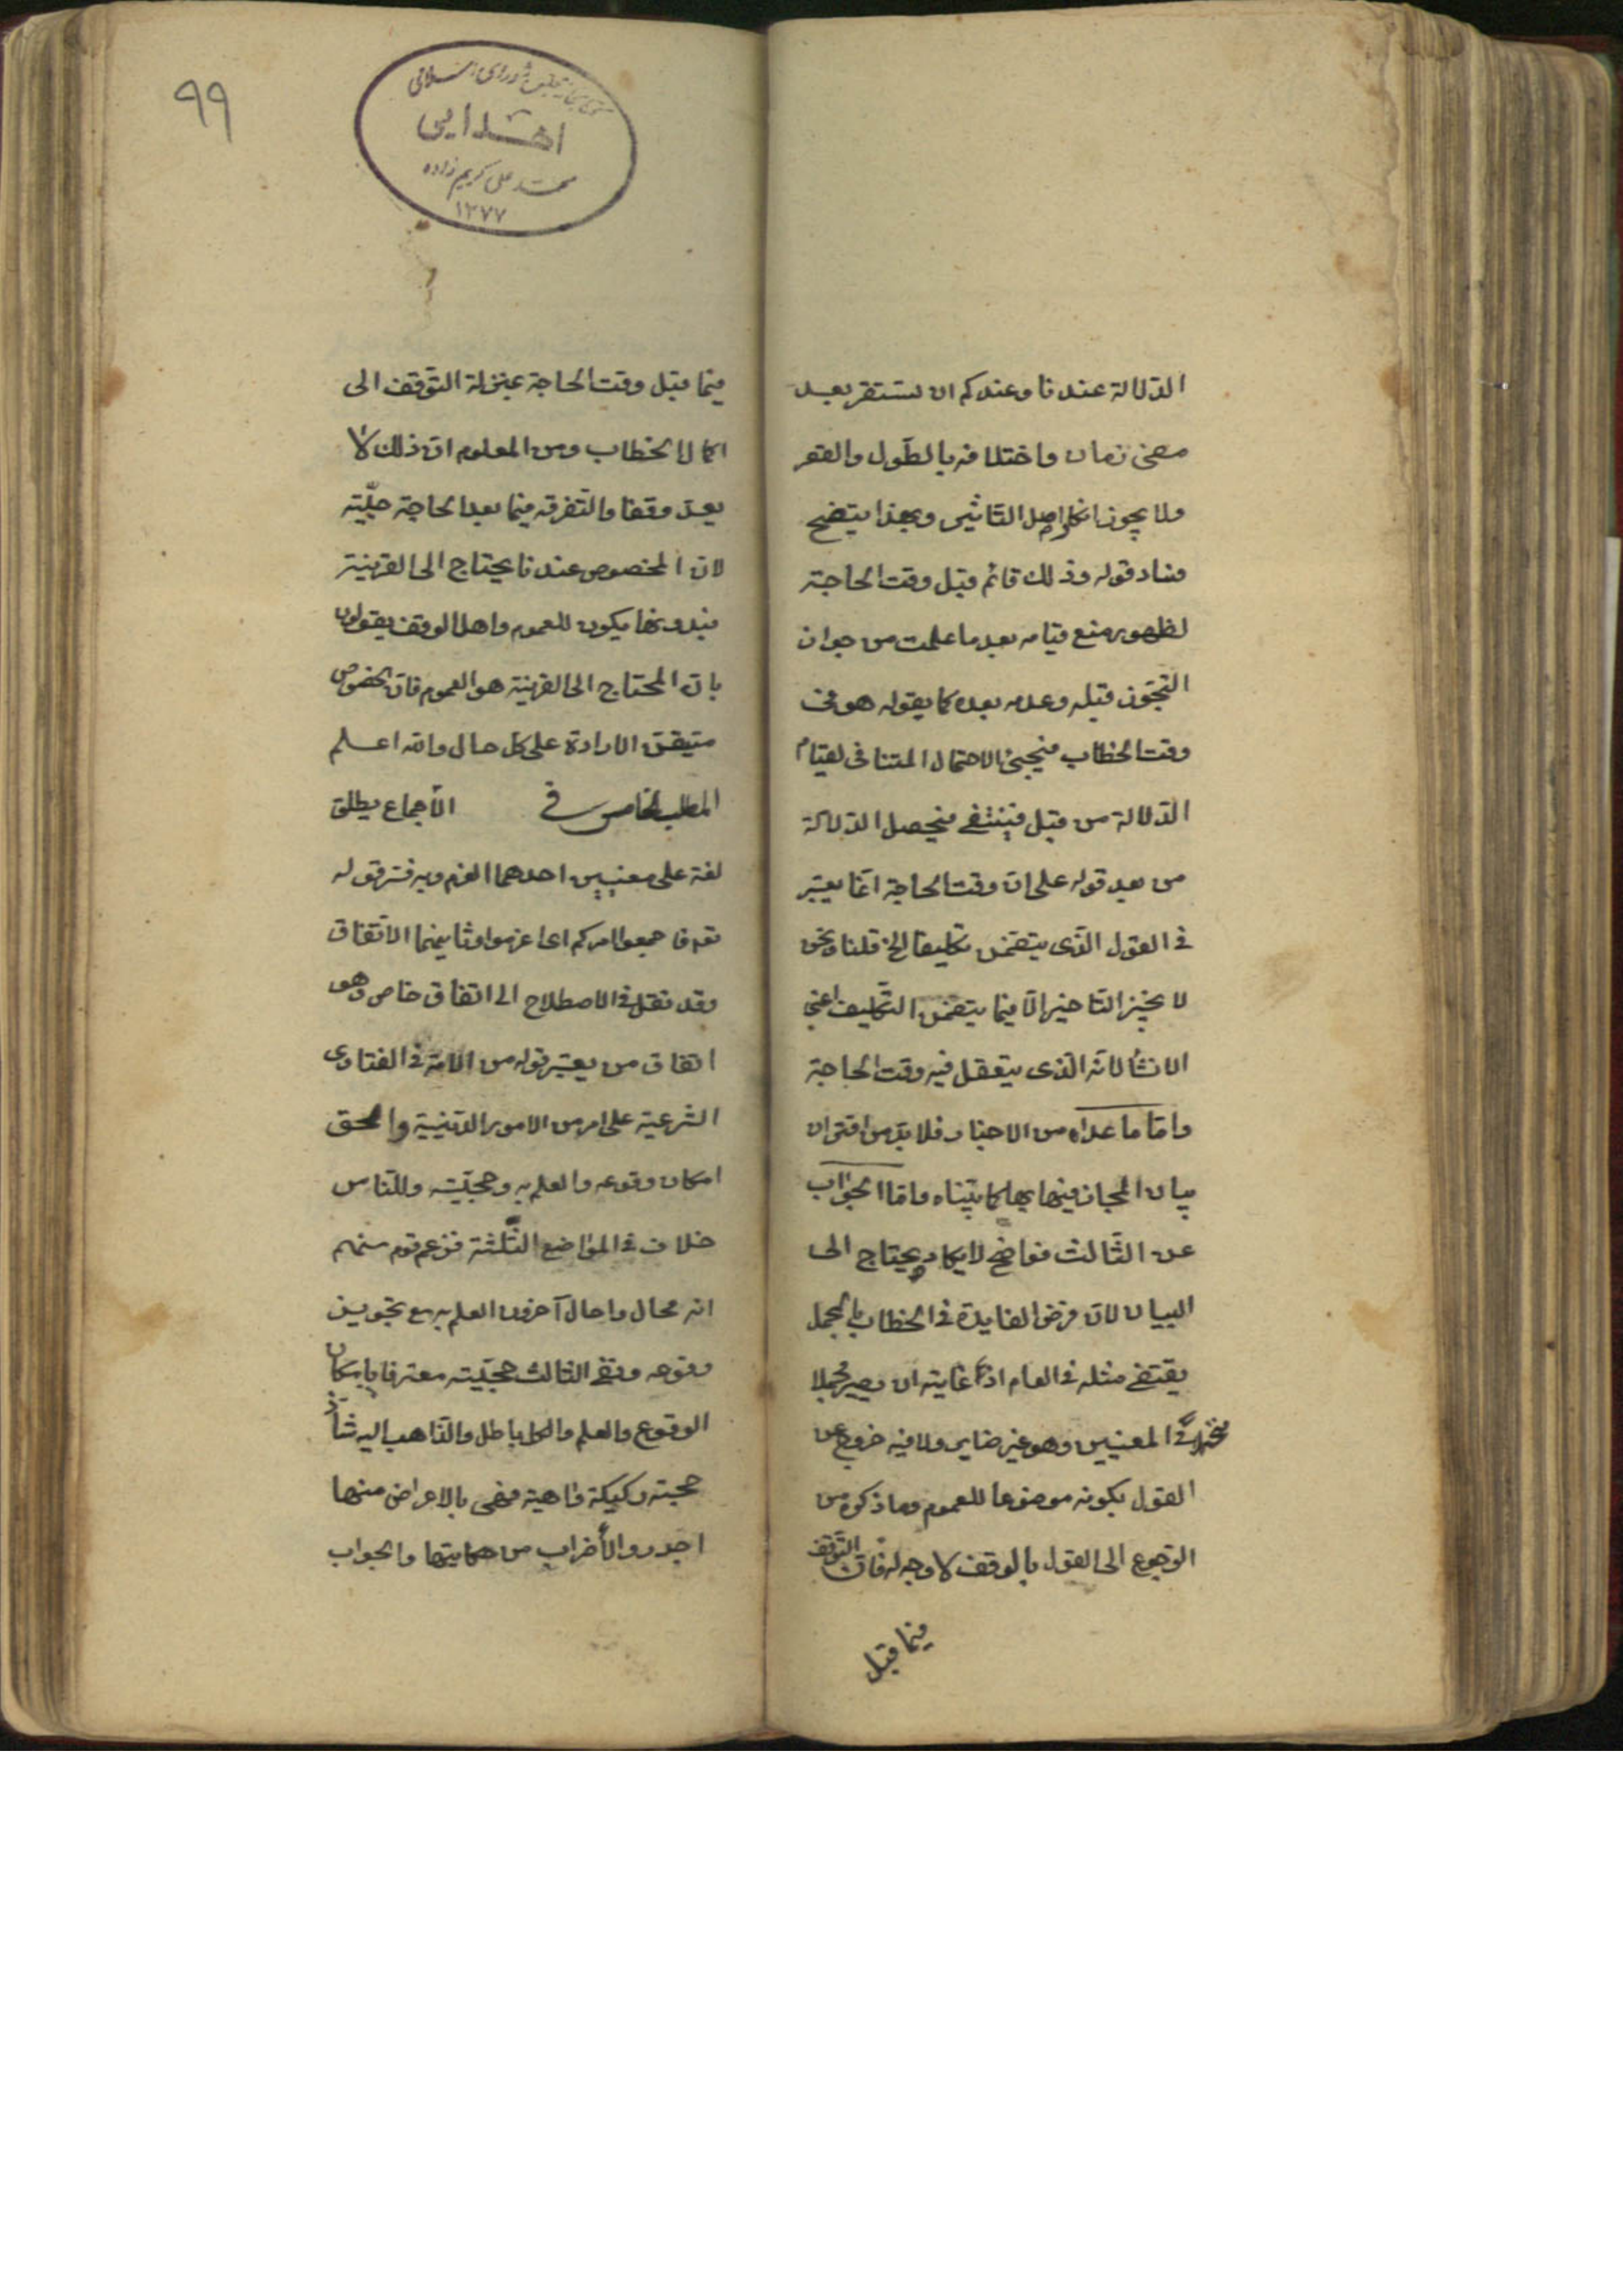 الدلالة عندنا وعندكم ان تستقر بعد
مضى زمان واختلافه بالطول والقصر
ولا يجوز انكار اصل التاثير وبهذا يتضح
فساد قوله وذلك قائم قبل وقت الحاجة
لظهور منع قيامه بعد ما علمت من جواز
التجوز قبله وعدمه بعده كما يقوله هو فى
وقت الخطاب فيجئ الاحتمال المتنافى لقيام
الدلالة من قبل فينتفى فيحصل الدلالة
من بعد قوله على ان وقت الحاجة انما يعتبر
فى القول الذى يتضمن تكليفا الخ قلنا ونحن
لا نجيز التاخير الا فيما يتضمن التكليف اعنى
الانشاء لانه الذى يتعقل فيه وقت الحاجة
واما ما عداه من الاخبار فلا بد من اقتران
بيان المجاز فيها بها كما بيناه واما الجواب
عن الثالث فواضح لا يكاد يحتاج الى
البيان لان فرض الفايدة فى الخطاب بالمجمل
يقتضى مثله فى العام اذ غايته ان يصير مجملا
فى المعنيين وهو غير ضاير ولا فيه خروج عن
القول بكونه موضوعا للعموم وما ذكره من
الرجوع الى القول بالوقف لا وجه له فان التوقف
فيما قبل
٩٩
كتابخانه مجلس شوراى اسلامى
اهدایی
محمد على كريم زاده
١٣٧٧
فيما قبل وقت الحاجة بمنزلة التوقف الى
اكمال الخطاب ومن المعلوم ان ذلك لا
يعد وقفا والتفرقه فيما بعد الحاجة جليّة
لان المخصوص عندنا يحتاج الى القرينة
فبدونها يكون للعموم واهل الوقف يقولون
بان المحتاج الى القرينة هو العموم فان الخصوص
متيقن الارادة على كل حال والله اعلم
المطلب الخامس فى الاجماع يطلق
لغة على معنيين احدهما العزم وبه فسر قوله
تعه فاجمعوا امركم اى اعزموا وثانيهما الاتفاق
وقد نقل فى الاصطلاح الى اتفاق خاص وهو
اتفاق من يعتبر قوله من الامة فى الفتاوى
الشرعية على امر من الامور الدينية والحق
امكان وقوعه والعلم به وحجيّته وللناس
خلاف فى المواضع الثلثة فزعم قوم منهم
انه محال واحال آخرون العلم به مع تجويز
وقوعه ونفى الثالث حجيّته معترفا بامكان
الوقوع والعلم والكل باطل والذاهب اليه شاذ
حجته ركيكة واهية فهى بالاعراض منها
اجدر والأضراب من حكايتها والجواب